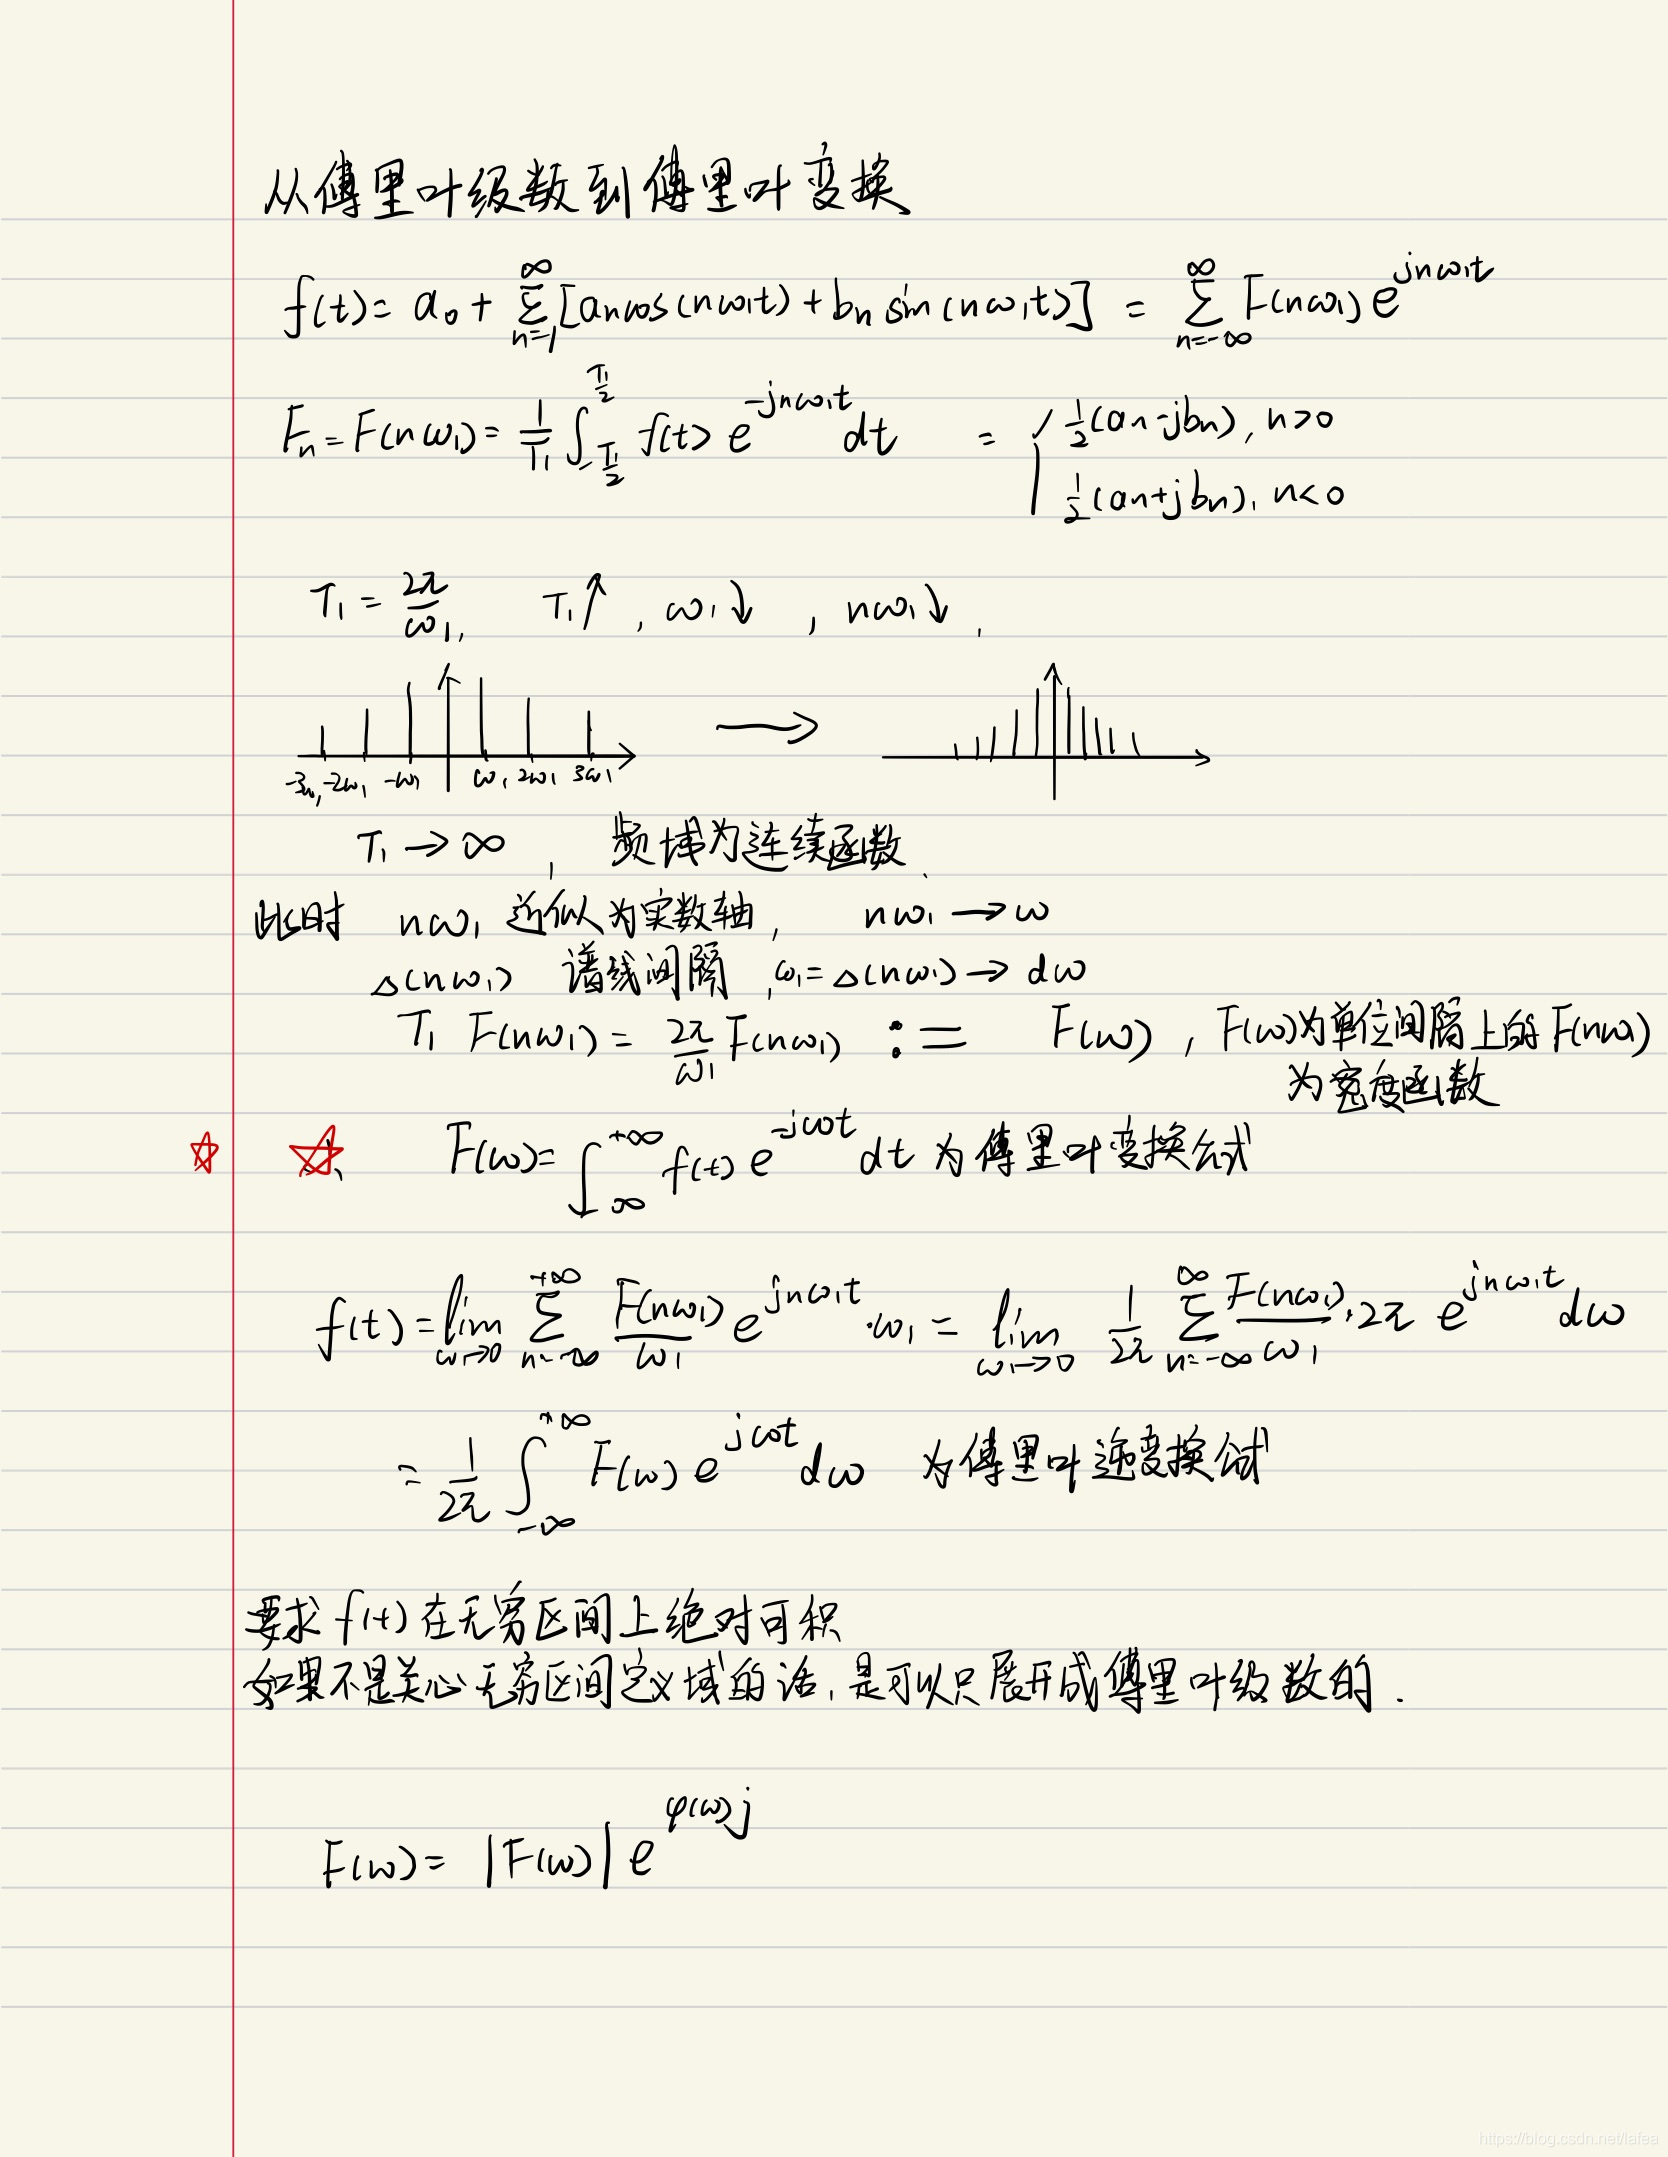 从傅里叶级数到傅里叶变换
f(t) = a₀ + ∑_{n=1}^{∞} [aₙcos(nω₁t) + bₙ sin(nω₁t)] = ∑_{n=-∞}^{∞} F(nω₁) e^{jnω₁t}
Fₙ = F(nω₁) = 1/T₁ ∫_{-T₁/2}^{T₁/2} f(t) e^{-jnω₁t} dt = { 1/2(aₙ-jbₙ), n>0
1/2(aₙ+jbₙ), n<0
T₁ = 2π/ω₁, T₁↑, ω₁↓, nω₁↓,
-3ω₁ -2ω₁ -ω₁ ω₁ 2ω₁ 3ω₁ →
T₁ → ∞, 频域为连续函数.
此时 nω₁ 近似为实数轴, nω₁ → ω
Δ(nω₁) 谱线间隔, ω₁ = Δ(nω₁) → dω
T₁ F(nω₁) = 2π/ω₁ F(nω₁) := F(ω), F(ω)为单位间隔上的F(nω₁)
为密度函数
F(ω) = ∫_{-∞}^{+∞} f(t) e^{-jωt} dt 为傅里叶变换公式
f(t) = lim_{ω₁→0} ∑_{n=-∞}^{+∞} F(nω₁)/ω₁ e^{jnω₁t} · ω₁ = lim_{ω₁→0} 1/2π ∑_{n=-∞}^{∞} F(nω₁)/ω₁ · 2π e^{jnω₁t} dω
= 1/2π ∫_{-∞}^{+∞} F(ω) e^{jωt} dω 为傅里叶逆变换公式
要求 f(t) 在无穷区间上绝对可积
如果不是关心无穷区间定义域的话, 是可以只展开成傅里叶级数的.
F(ω) = |F(ω)| e^{φ(ω)j}
https://blog.csdn.net/lafea